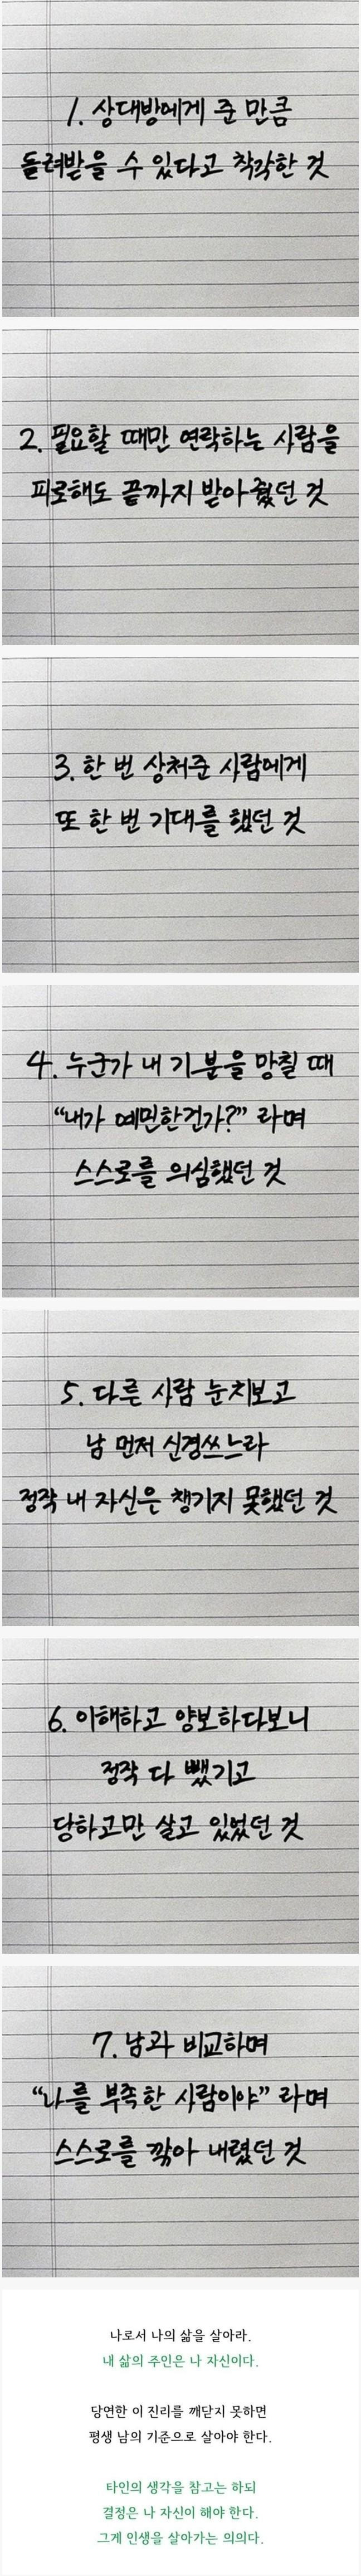 1. 상대방에게 준 만큼
돌려받을 수 있다고 착각한 것
2. 필요할 때만 연락하는 사람을
피로해도 끝까지 받아줬던 것
3. 한 번 상처준 사람에게
또 한 번 기대를 했던 것
4. 누군가 내 기분을 망칠 때
“내가 예민한건가?” 라며
스스로를 의심했던 것
5. 다른 사람 눈치보고
남 먼저 신경쓰느라
정작 내 자신은 챙기지 못했던 것
6. 이해하고 양보하다보니
정작 다 뺐기고
당하고만 살고 있었던 것
7. 남과 비교하며
“나를 부족한 사람이야” 라며
스스로를 깎아 내렸던 것
나로서 나의 삶을 살아라.
내 삶의 주인은 나 자신이다.
당연한 이 진리를 깨닫지 못하면
평생 남의 기준으로 살아야 한다.
타인의 생각을 참고는 하되
결정은 나 자신이 해야 한다.
그게 인생을 살아가는 의의다.